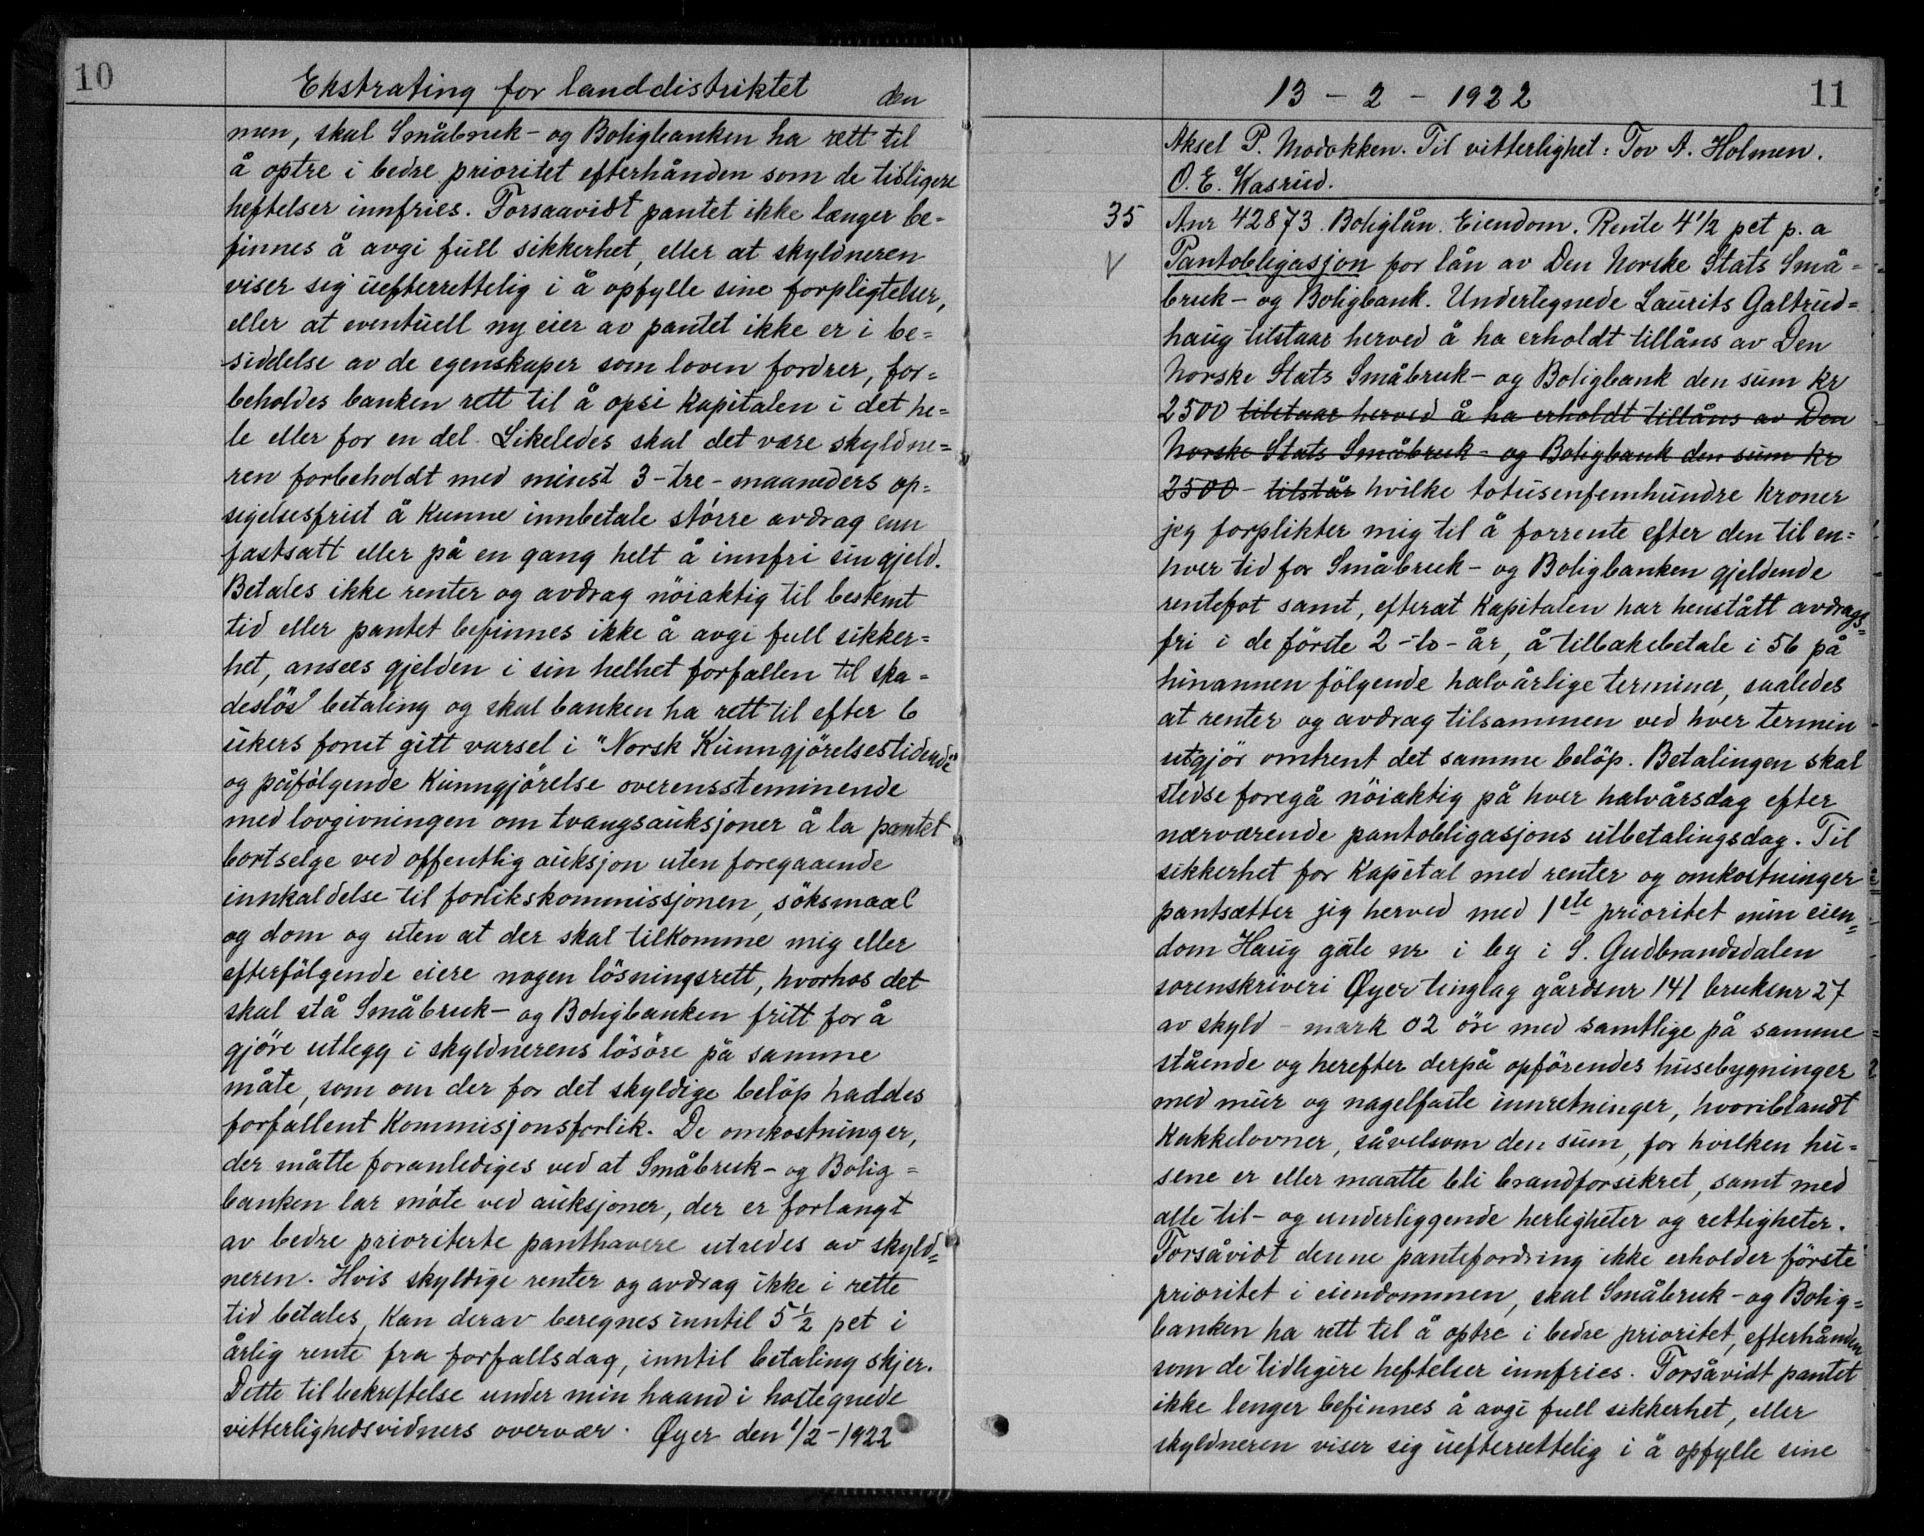 10
Ekstrating for landdistriktet den
men, skal Småbruk- og Boligbanken ha rett til
å optre i bedre prioritet efterhånden som de tidligere
heftelser innfries. Forsaavidt pantet ikke længer be-
finnes å avgi full sikkerhet, eller at skyldneren
viser sig uefterrettelig i å opfylle sine forpligtelser,
eller at eventuell ny eier av pantet ikke er i be=
siddelse av de egenskaper som loven fordrer, for=
beholdes banken rett til å opsi kapitalen i det he=
le eller for en del. Likeledes skal det være skyldne=
ren forbeholdt med minst 3-tre-maaneders op=
sigelsesfrist å kunne innbetale större avdrag enn
fastsatt eller på en gang helt å innfri sin gjeld.
Betales ikke renter og avdrag nöiaktig til bestemt
tid eller pantet befinnes ikke å avgi full sikker=
het, ansees gjelden i sin helhet forfallen til ska=
deslös betaling og skal banken ha rett til efter 6
ukers forut gitt varsel i "Norsk Kunngjörelsestidende"
og påfölgende kunngjörelse overensstemmende
med lovgivningen om tvangsauksjoner å la pantet
bortselge ved offentlig auksjon uten foregaaende
innkaldelse til forlikskommissjonen, söksmaal
og dom og uten at der skal tilkomme mig eller
efterfölgende eiere nogen lösningsrett, hvorhos det
skal stå Småbruk- og Boligbanken fritt for å
gjöre utlegg i skyldnerens lösöre på samme
måte, som om der for det skyldige belöp haddes
forfallent kommisjonsforlik. De omkostninger,
der måtte foranlediges ved at Småbruk- og Bolig=
banken lar möte ved auksjoner, der er forlangt
av bedre prioriterte panthavere utredes av skyld=
neren. Hvis skyldige renter og avdrag ikke i rette
tid betales, kan derav beregnes inntil 5 1/2 pct i
årlig rente fra forfallsdag, inntil betaling skjer.
Dette til bekreftelse under min haand i hostegnede
vitterlighedsvidners overvær. Øyer den 1/2-1922
13 - 2 - 1922 11
Aksel P. Modokken. Til vitterlighet: Tov A. Holmen.
O. E. Kasrud.
35 Anr 42873. Boliglån. Eiendom. Rente 4 1/2 pct p. a
V Pantobligasjon for lån av Den Norske Stats Små=
bruk- og Boligbank. Undertegnede Laurits Galtrud=
haug tilstaar herved å ha erholdt tillåns av Den
Norske Stats Småbruk- og Boligbank den sum kr
2500 tilstaar herved å ha erholdt tillåns av Den
Norske Stats Småbruk- og Boligbank den sum kr
2500 - tilstår hvilke totusenfemhundre kroner
jeg forplikter mig til å forrente efter den til en=
hver tid for Småbruk- og Boligbanken gjeldende
rentefot samt, efterat kapitalen har henstått avdrags=
fri i de förste 2-to-år, å tilbakebetale i 56 på
hinannen fölgende halvårlige terminer, saaledes
at renter og avdrag tilsammen ved hver termin
utgjör omtrent det samme belöp. Betalingen skal
stedse foregå nöiaktig på hver halvårsdag efter
nærværende pantobligasjons utbetalingsdag. Til
sikkerhet for kapital med renter og omkostninger
pantsætter jeg herved med 1ste prioritet min eien=
dom Haug gate nr i by i S. Gudbrandsdalen
sorenskriveri Øyer tinglag gårdsnr 141 bruksnr 27
av skyld - mark 02 öre med samtlige på samme
stående og herefter derpå opförendes husebygninger
med mur og nagelfaste innretninger, hvoriblandt
kakkelovner, såvelsom den sum, for hvilken hu=
sene er eller maatte bli brandforsikret, samt med
alle til- og underliggende herligheter og rettigheter.
Forsåvidt denne pantefordring ikke erholder förste
prioritet i eiendommen, skal Småbruk- og Bolig=
banken ha rett til å optre i bedre prioritet, efterhånden
som de tidligere heftelser innfries. Forsåvidt pantet
ikke lenger befinnes å avgi full sikkerhet, eller
skyldneren viser sig uefterrettelig i å opfylle sine